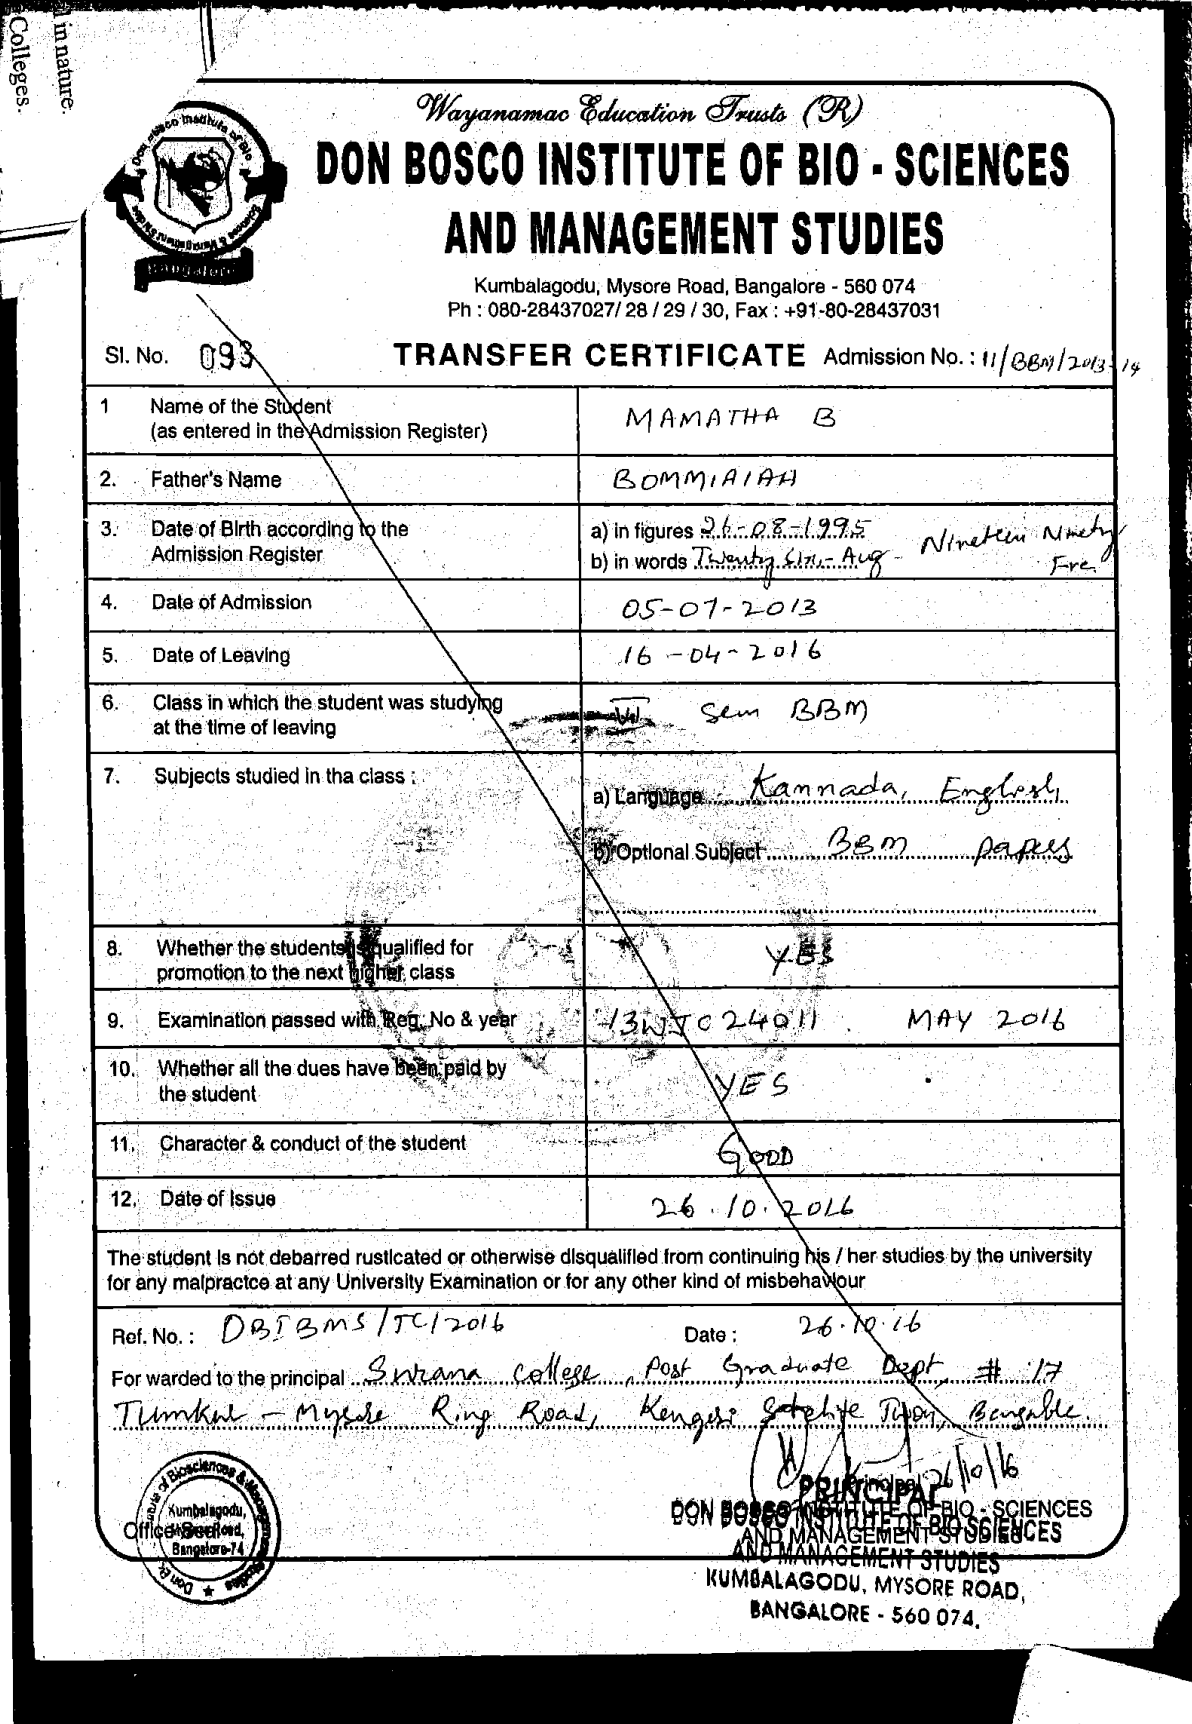 in nature.
Colleges.
Wayanamac Education Trusts (R)
DON BOSCO INSTITUTE OF BIO - SCIENCES
AND MANAGEMENT STUDIES
Bangalore
Kumbalagodu, Mysore Road, Bangalore - 560 074
Ph : 080-28437027/ 28 / 29 / 30, Fax : +91-80-28437031
Sl. No. 093 TRANSFER CERTIFICATE Admission No. : 11/BBM/2013-14
1 Name of the Student MAMATHA B
(as entered in the Admission Register)
2. Father's Name BOMMIAIAH
3. Date of Birth according to the a) in figures 26-08-1995
Admission Register b) in words Twenty Six - Aug - Nineteen Ninety Five
4. Date of Admission 05-07-2013
5. Date of Leaving 16-04-2016
6. Class in which the student was studying VI Sem BBM
at the time of leaving
7. Subjects studied in tha class :
a) Language Kannada, English,
b) Optional Subject BBM papers
8. Whether the students is qualified for YES
promotion to the next higher class
9. Examination passed with Reg. No & year 13WJC24011 MAY 2016
10. Whether all the dues have been paid by YES
the student
11. Character & conduct of the student GOOD
12. Date of Issue 26.10.2016
The student is not debarred rusticated or otherwise disqualified from continuing his / her studies by the university
for any malpractce at any University Examination or for any other kind of misbehaviour
Ref. No. : DBIBMS/TC/2016 Date : 26.10.16
For warded to the principal Surana College, Post Graduate Dept, # 17
Tumkur - Mysore Ring Road, Kengeri Satelite Town, Bangalore.
26/10/16
Principal
PRINCIPAL
DON BOSCO INSTITUTE OF BIO - SCIENCES
AND MANAGEMENT STUDIES
DON BOSCO INSTITUTE OF BIO SCIENCES
AND MANAGEMENT STUDIES
KUMBALAGODU, MYSORE ROAD,
BANGALORE - 560 074.
Office Seal
Kumbalagodu,
Mysore Road,
Bangalore-74